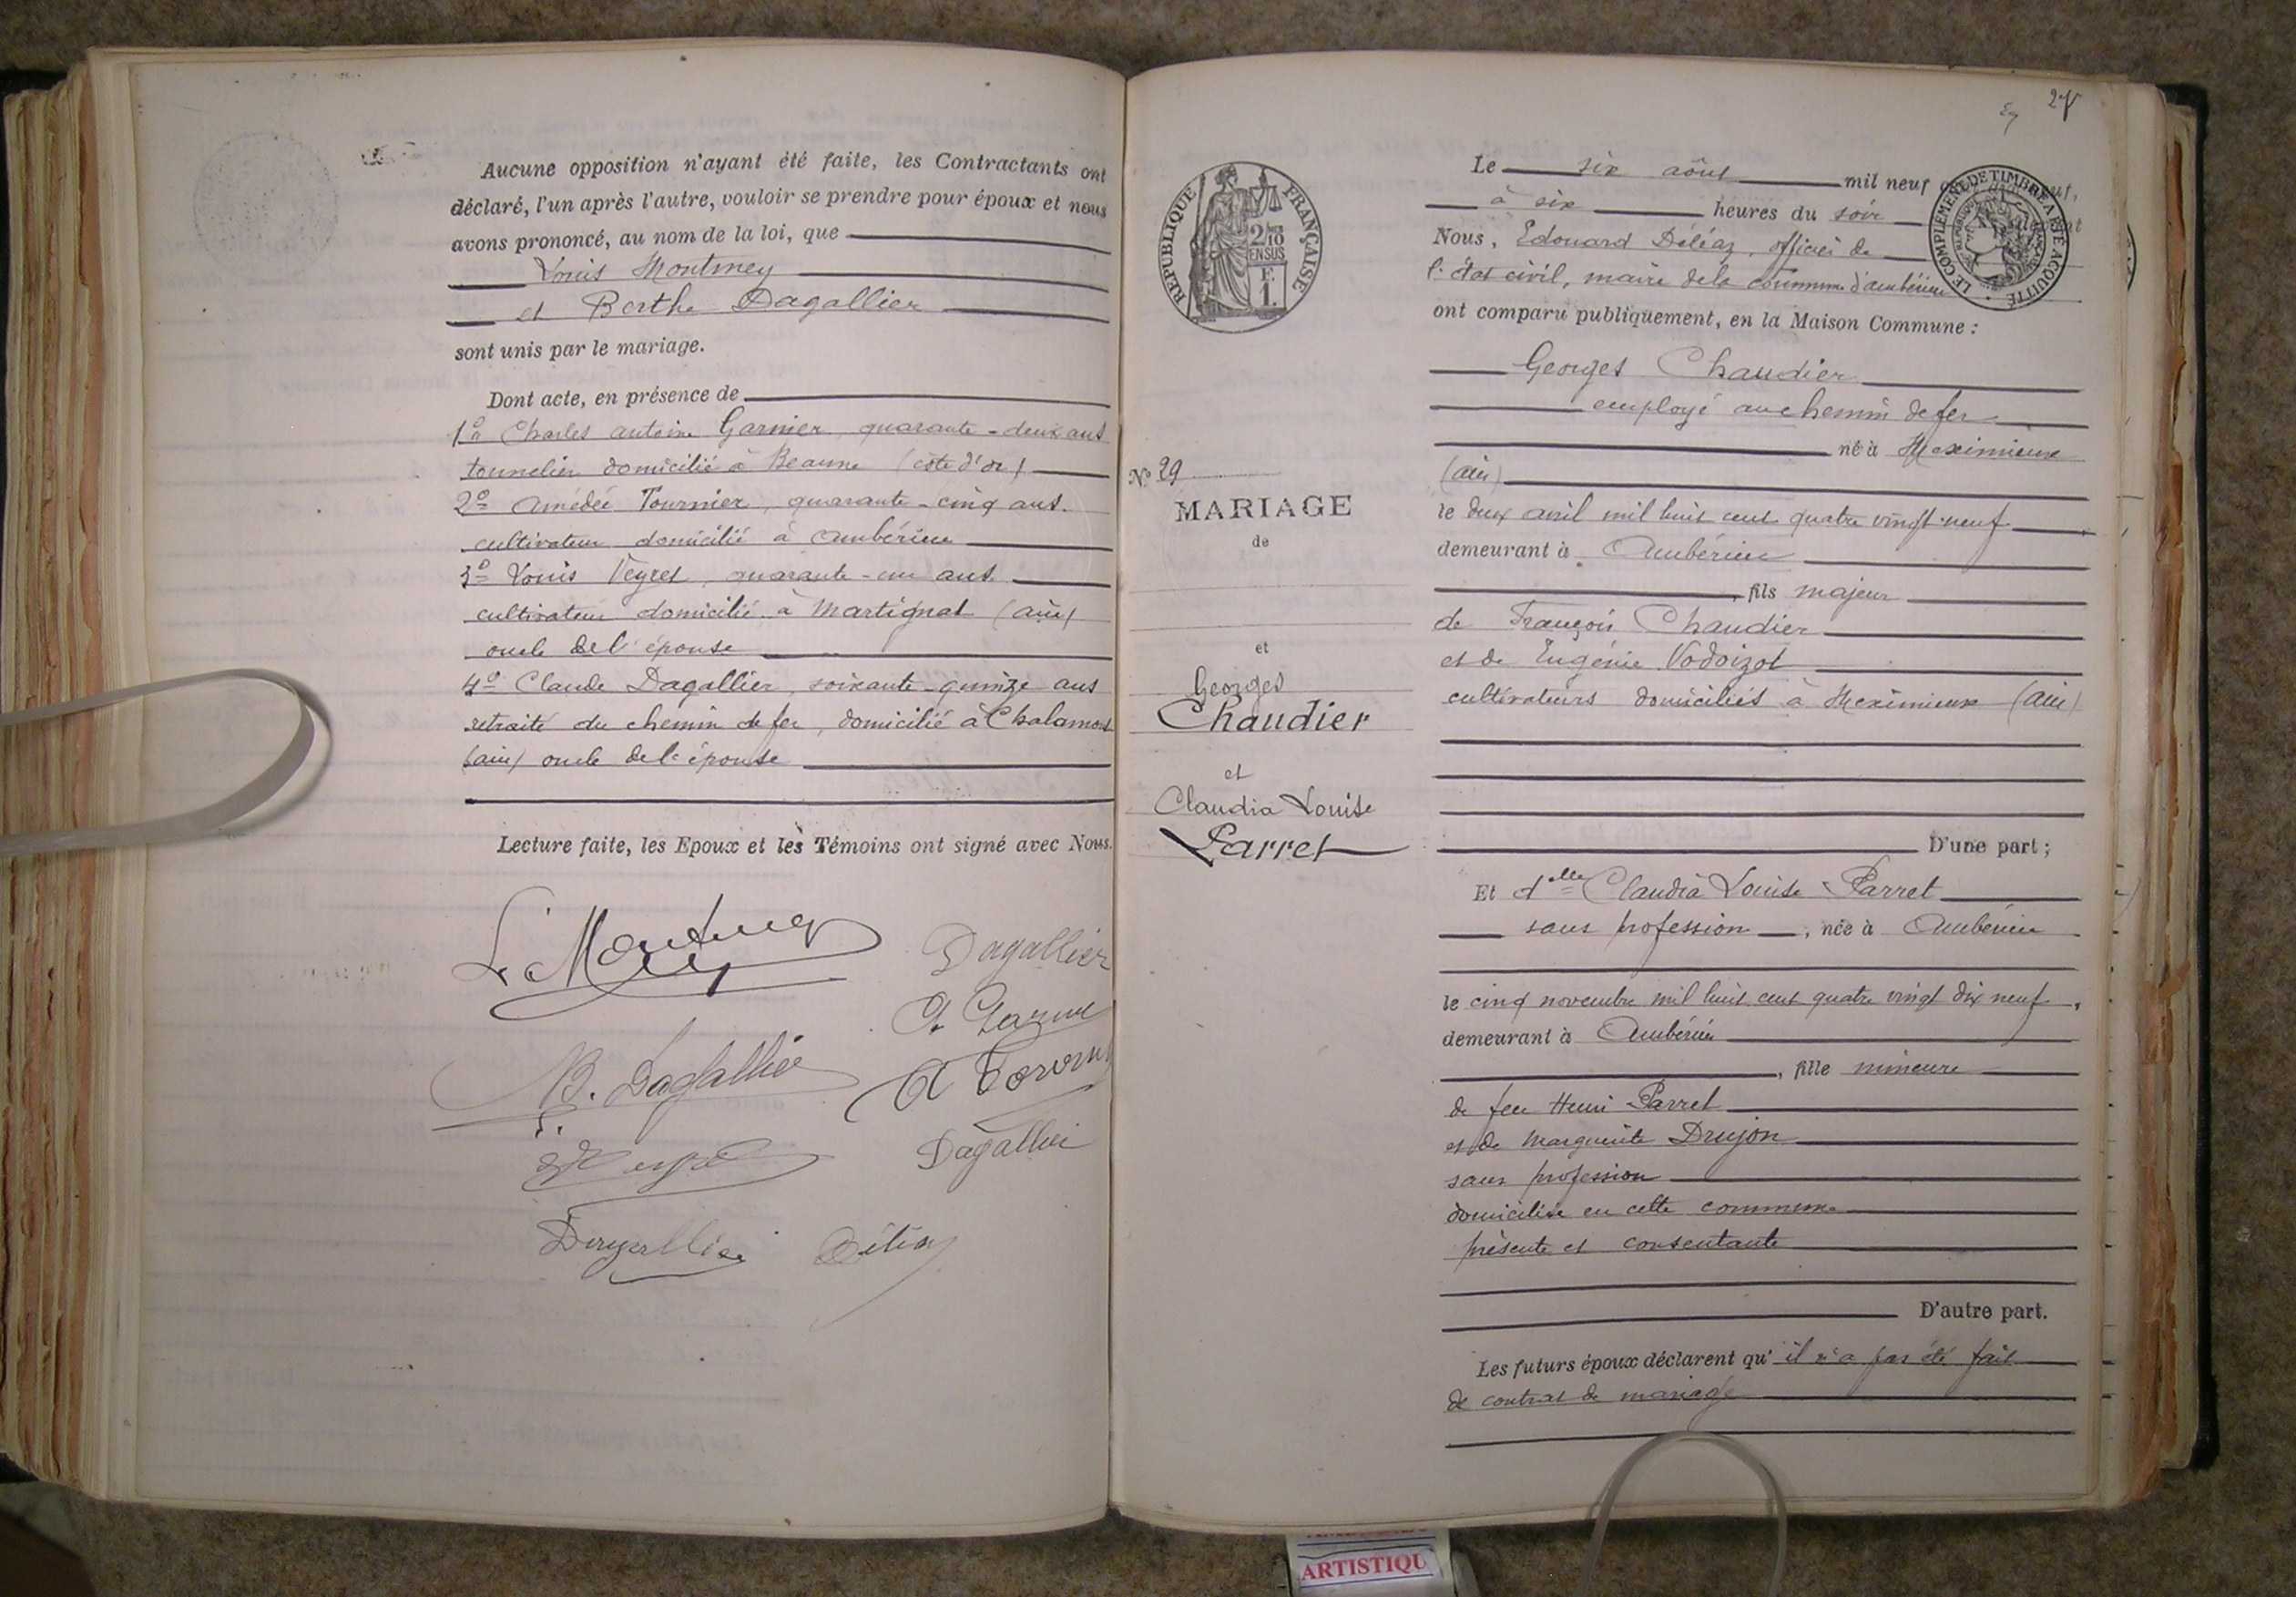 Aucune opposition n'ayant été faite, les Contractants ont
déclaré, l'un après l'autre, vouloir se prendre pour époux et nous
avons prononcé, au nom de la loi, que
Louis Montmey
et Berthe Dagallier
sont unis par le mariage.
Dont acte, en présence de
1° Charles antoine Garnier, quarante-deux ans
tonnelier domicilié à Beaune (côte d'or)
2° Amédée Tournier, quarante-cinq ans.
cultivateur domicilié à Ambérieu
3° Louis Veyret, quarante-un ans
cultivateur domicilié à Martignat (ain)
oncle de l'épouse
4° Claude Dagallier, soixante-quinze ans
retraité du chemin de fer, domicilié à Chalamont
(ain) oncle de l'épouse
Lecture faite, les Epoux et les Témoins ont signé avec Nous.
Dagallier
B. Dagallier
Dagallier
27
RÉPUBLIQUE FRANÇAISE
2/10
EN SUS
F.
1.
LE COMPLÉMENT DE TIMBRE A ÉTÉ ACQUITTÉ
N° 29
MARIAGE
de
et
Georges
Chaudier
et
Claudia Louise
Parret
Le six août mil neuf
à six heures du soir
Nous, Edouard Déléaz, officier de
l'état civil, maire de la commune d'ambérieu
ont comparu publiquement, en la Maison Commune :
Georges Chaudier
employé au chemin de fer
né à Meximieux
(ain)
le deux avril mil huit cent quatre vingt-neuf
demeurant à Ambérieu
, fils majeur
de François Chaudier
et de Eugénie Vodoizot
cultivateurs domiciliés à Meximieux (ain)
D'une part ;
Et d'elle Claudia Louise Parret
sans profession, née à Ambérieu
le cinq novembre mil huit cent quatre vingt dix neuf,
demeurant à Ambérieu
, fille mineure
de feu Henri Parret
et de Marguerite Drujon
sans profession
domiciliée en cette commune
présente et consentante
D'autre part.
Les futurs époux déclarent qu' il n'a pas été fait
de contrat de mariage
ARTISTIQU